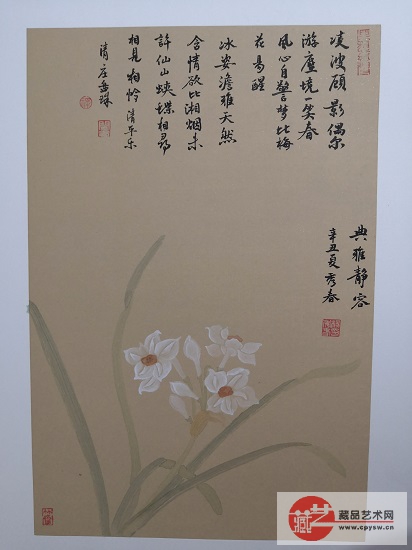 凌波顾影偶尔
游尘境一笑春
风心自警梦比梅
花易醒
冰姿澹雅天然
含情欲比湘烟未
许仙山蛱蝶相寻
相见相怜清平乐
清庄盘珠
典雅静容
辛丑夏秀春
藏品艺术网
www.cpysw.com